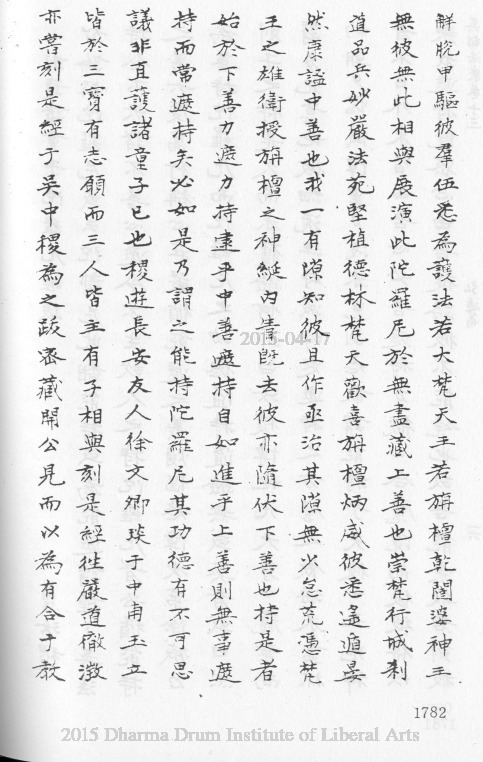 解脫甲驅彼羣伍悉為護法若大梵天王若旃檀乾闥婆神王
無彼無此相與展演此陀羅尼於無盡藏上善也崇梵行城剎
道品兵妙嚴法苑堅植德林梵天歡喜旃檀炳威彼悉遙遁晏
然康謐中善也我一有隙知彼且作亟治其隙無少怠荒憑梵
王之雄衛授旃檀之神綖內眚既去彼亦隨伏下善也持是者
始於下善力遮力持逮乎中善遮持自如進乎上善則無事遮
持而常遮持矣必如是乃謂之能持陀羅尼其功德有不可思
議非直護諸童子已也稷遊長安友人徐文卿琰于中甫玉立
皆於三寶有志願而三人皆主有子相與刻是經徃嚴道徹澂
亦嘗刻是經于吳中稷為之跋密藏開公見而以為有合于教
1782
2015-04-17
2015 Dharma Drum Institute of Liberal Arts